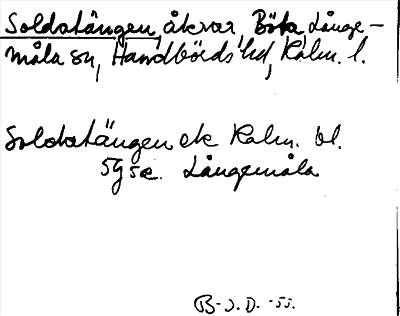 Soldatängen, åkrar, Böta, Långe-
måla sn, Handbörds hd, Kalm. l.
Soldatängen ek Kalm. bl.
5g5e. Långemåla
B-J.D. -55.